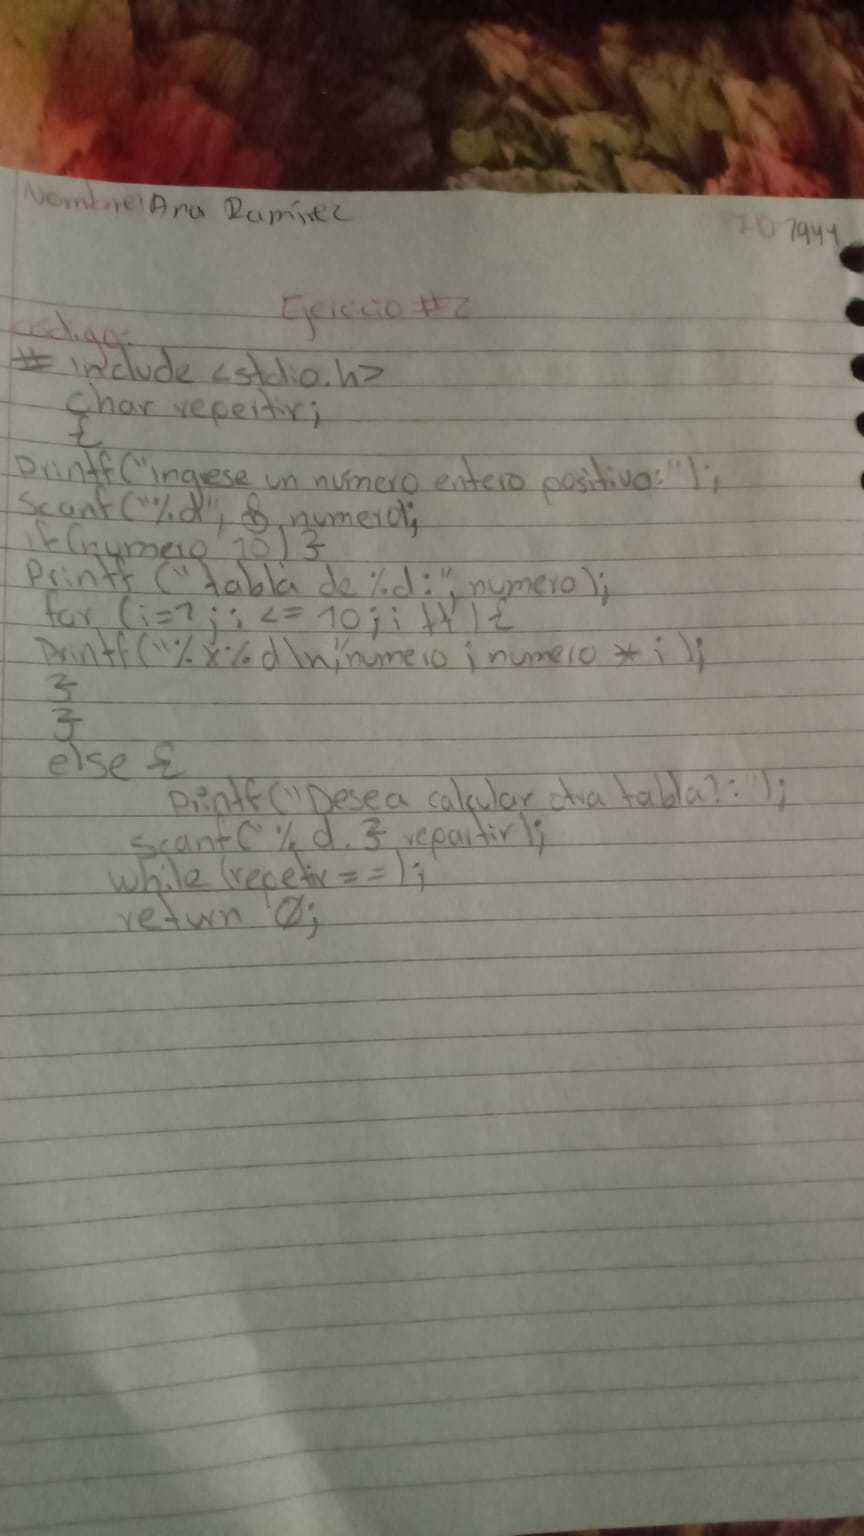 Nombre: Ana Ramírez
ID 7944
Ejercicio #2
codigo:
# include <stdio.h>
char repertir;
{
printf("ingrese un número entero positivo:");
scanf("%d", & numero);
if (numero 10) }
printf ("tabla de %d:", numero);
for (i=1; i <= 10; i ++) {
printf("% x % d \n", numero ; numero * i );
}
}
else {
printf("Desea calcular otra tabla?:");
scanf(" % d. } repartir);
while (repetir == );
return 0;